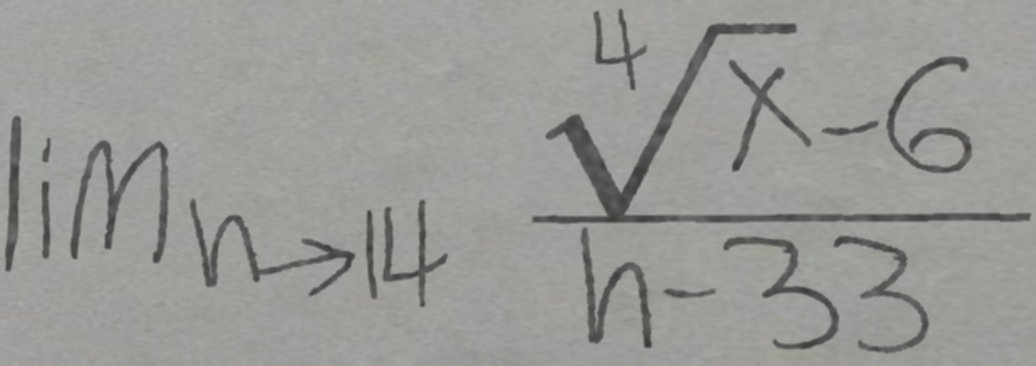 \lim_{n \to 14} \frac{\sqrt[4]{x} - 6}{n - 33}